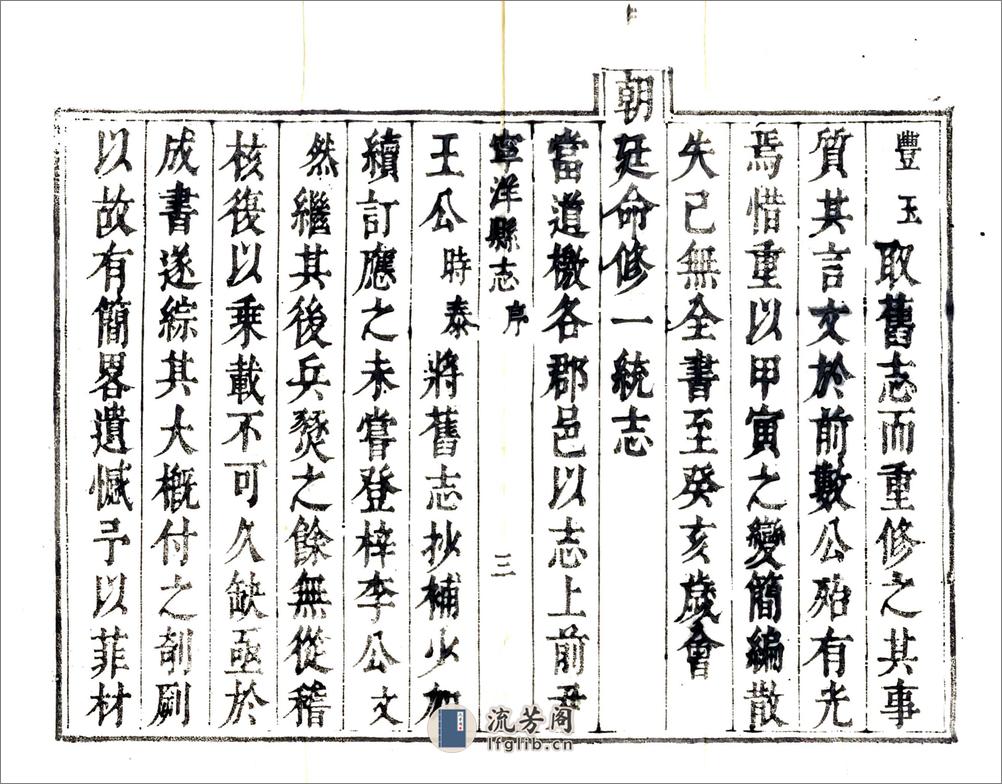 豐玉取舊志而重修之其事
質其言文於前數公殆有光
焉惜重以甲寅之變簡編散
失已無全書至癸亥歲會
朝
廷命修一統志
當道檄各郡邑以志上前尹
寧洋縣志 序 三
王公時泰將舊志抄補少加
續訂應之未嘗登梓李公文
然繼其後兵燹之餘無從稽
核復以乘載不可久缺亟於
成書遂綜其大概付之剞劂
以故有簡畧遺憾予以菲材
流芳阁
lfglib.cn